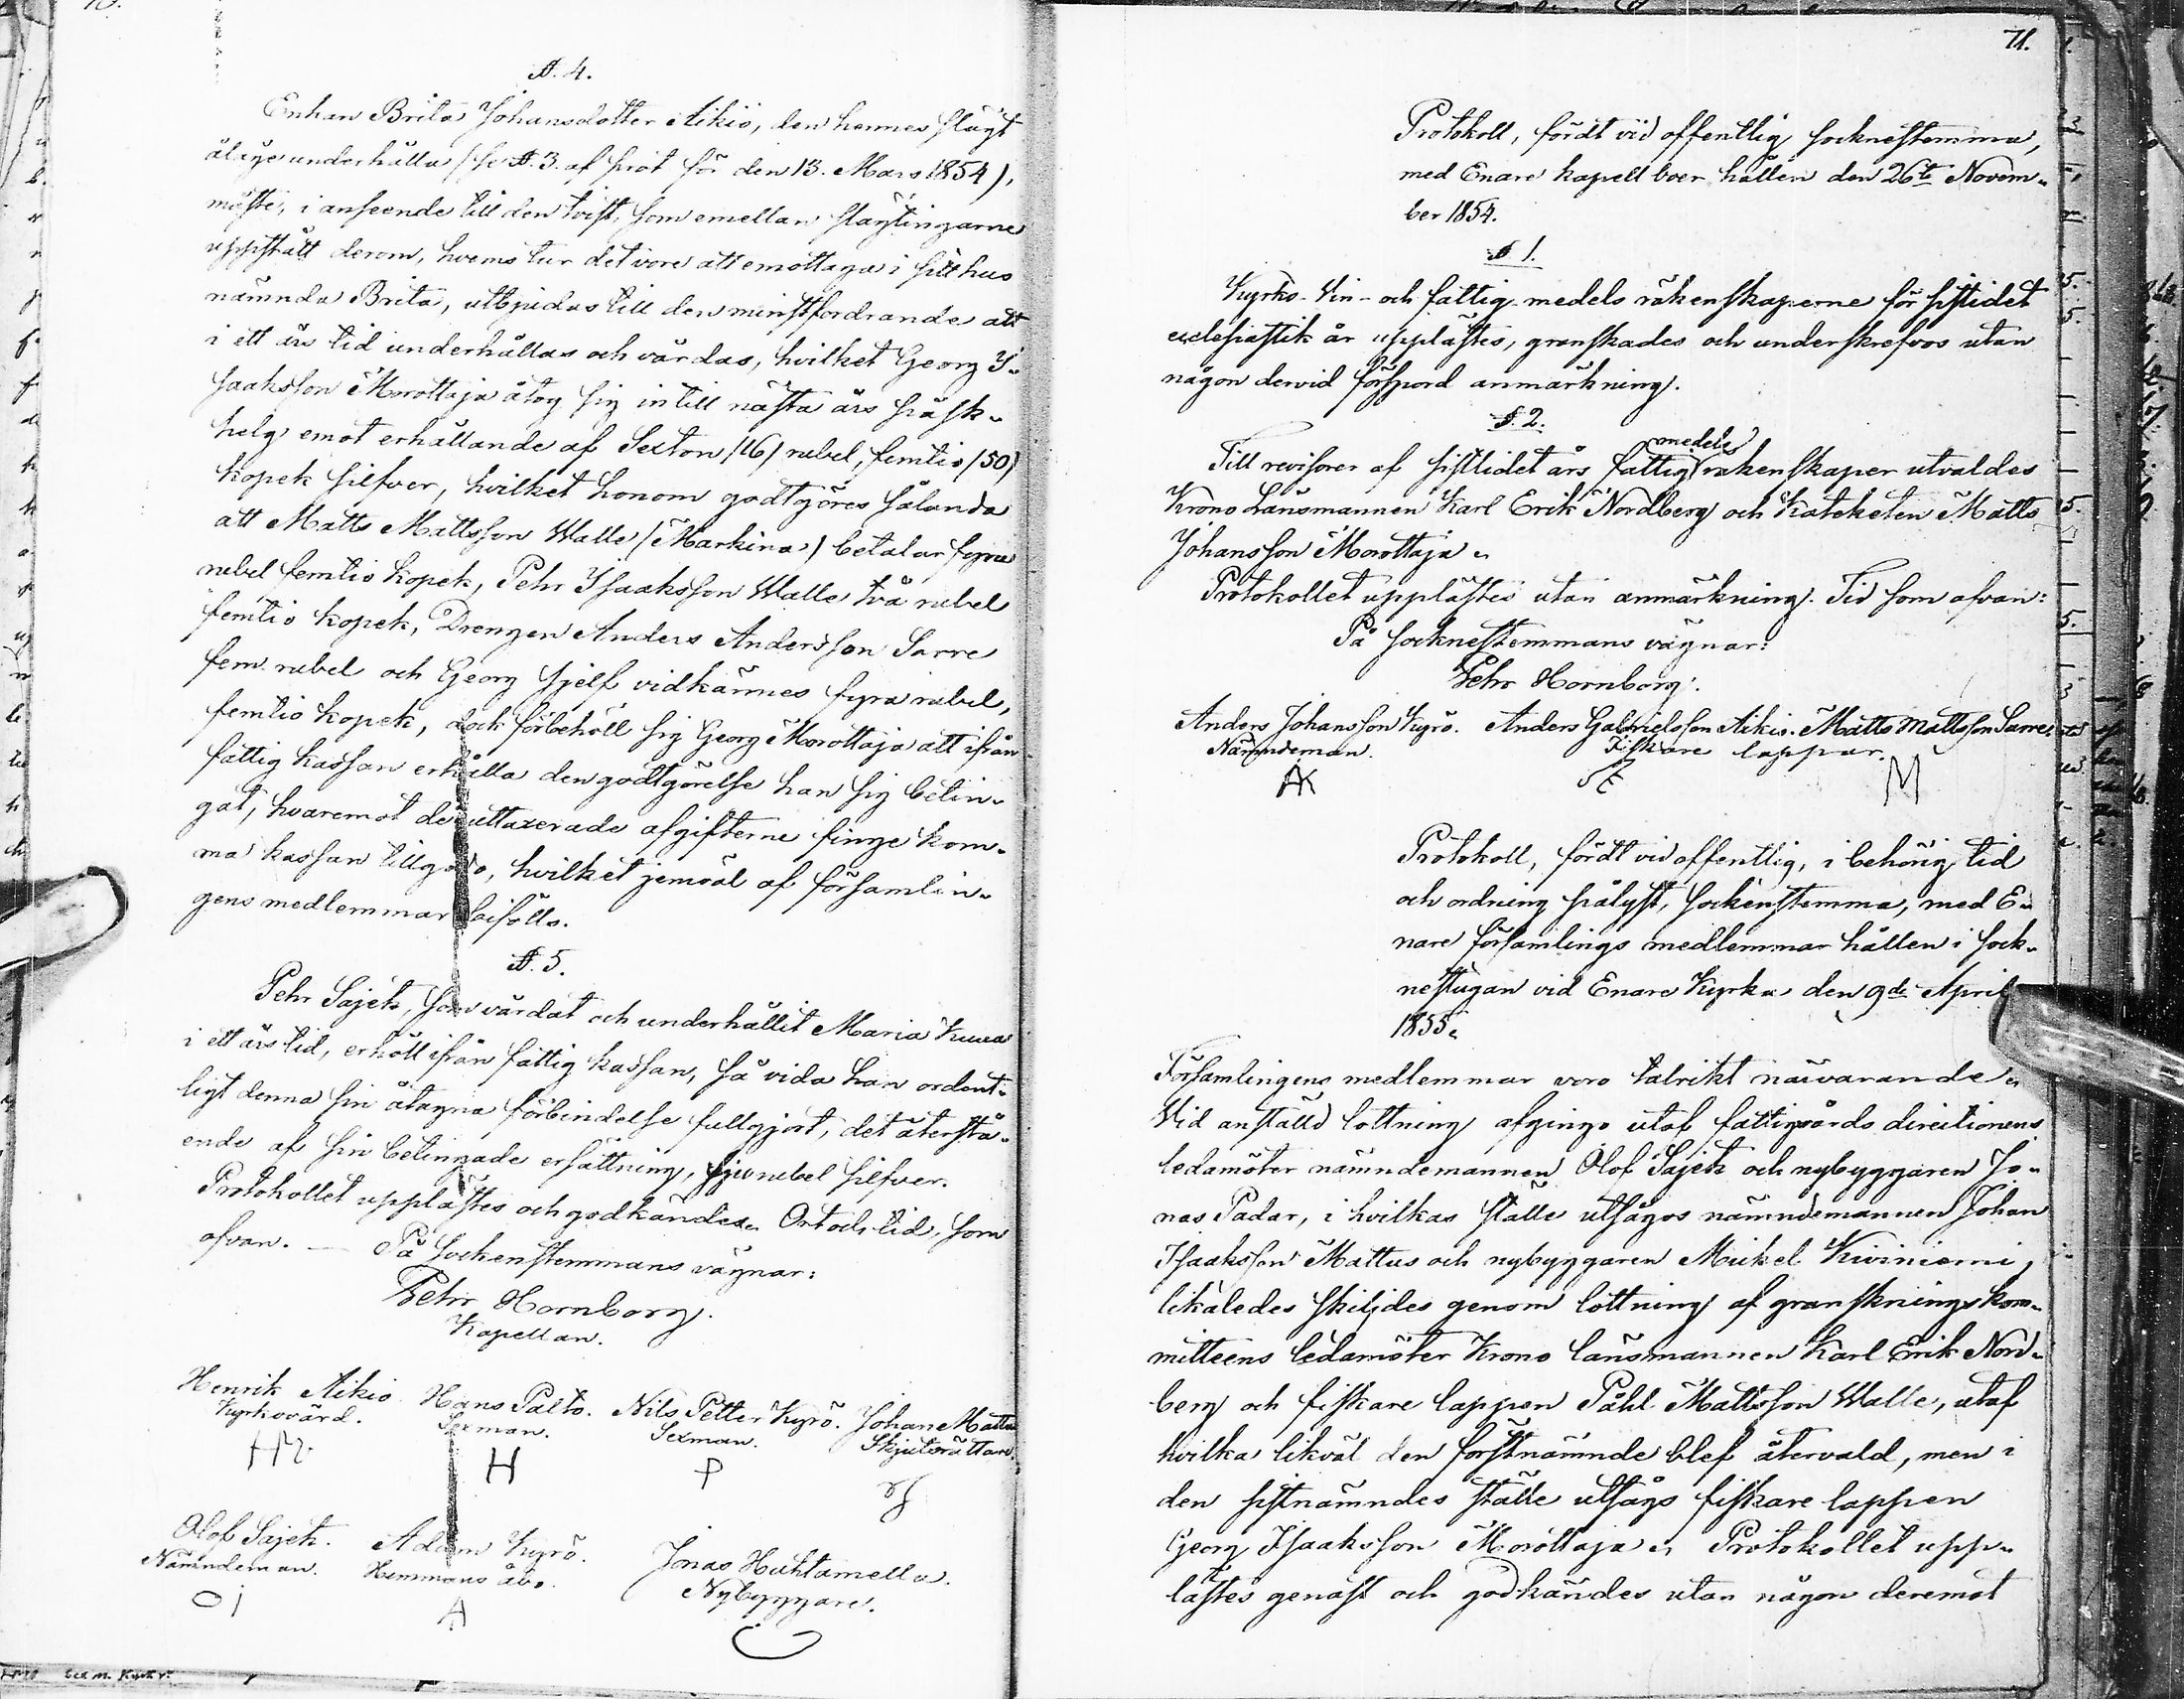 §. 4.
Enkan Brita Johansdotter Aikio, den hennes slägt
ålåge underhålla (se §. 3. af prot för den 13. Mars 1854),
måste, i anseende till den tvist, som emellan slägtingarne
uppstått derom, hvems tur det vore att emottaga i sitt hus
nämnda Brita, utbjudas till den minstfordrande att
i ett års tid underhållas och vårdas, hvilket Georg I-
saaksson Morottaja åtog sig intill nästa års påsk-
helg emot erhållande af Sexton (16) rubel, femtio (50)
kopek silfver, hvilket honom godtgöres sålunda
att Matts Mattsson Walle (Markina) betalar fyra
rubel femtio kopek, Pehr Isaaksson Walle två rubel
femtio kopek, Drengen Anders Andersson Sarre
fem rubel och Georg sjelf vidkännes fyra rubel,
femtio kopek, dock förbehöll sig Georg Morottaja att ifrån
fattig kassan erhålla den godtgörelse han sig betin-
gat, hvaremot de uttaxerade afgifterne finge kom-
ma kassan tillgodo, hvilket jemväl af församlin-
gens medlemmar bifölls.
§. 5.
Pehr Sajets, som vårdat och underhållit Maria Kuuva
i ett års tid, erhöll ifrån fattig kassan, så vida han ordent-
ligt denna sin åtagna förbindelse fullgjort, det återstå-
ende af sin betingade ersättning, sju rubel silfver.
Protokollet upplästes och godkändes. Ort och tid, som
ofvan. — På Sockenstemmans vägnar:
Pehr Hornborg.
Kapellan.
Henrik Aikio. Hans Palto. Nils Petter Kyrö. Johan Mattus
Kyrkovärd. Sexman. Sexman. Skjutsrättare.
H P
Olof Sajets. Adam Kyrö. Jonas Huhtamella.
Nämndeman. Hemmans åbo. Nybyggare.
O j A
71.
Protokoll, fördt vid offentlig socknestemma,
med Enare kapell boer hållen den 26te Novem-
ber 1854.
§ 1.
Kyrko- Vin- och fattig medels räkenskaperne för sistlidet
ecclesiastik år upplästes, granskades och underskrefvos utan
någon dervid försspord anmärkning.
§. 2.
medels
Till revisorer af sistlidet års fattig räkenskaper utvaldes
Krono Länsmannen Karl Erik Nordberg och Kateketen Matts
Johansson Morottaja.
Protokollet upplästes utan anmärkning. Tid som ofvan:
På socknestemmans vägnar:
Pehr Hornborg.
Anders Johansson Kyrö. Anders Gabrielsson Aikio. Matts Mattsson Sarre.
Nämndeman. Fiskare lappar.
AK M
Protokoll, fördt vid offentlig, i behörig tid
och ordning pålyst, sockenstemma, med E-
nare församlings medlemmar hållen i sock-
nestugan vid Enare Kyrka den 9de April
1855.
Församlingens medlemmar voro talrikt närvarande.
Vid anställd lottning afgingo utaf fattigvårds directionens
ledamöter nämndemannen Olof Sajets och nybyggaren Jo-
nas Padar, i hvilkas ställe utsågos nämndemannen Johan
Isaaksson Mattus och nybyggaren Mickel Kiviniemi,
likaledes skiljdes genom lottning af gransknings kom-
mitteens ledamöter Krono länsmannen Karl Erik Nord-
berg och fiskare lappen Påhl Mattsson Walle, utaf
hvilka likväl den förstnämnde blef återvald, men i
den sistnämndes ställe utsågs fiskare lappen
Georg Isaaksson Morottaja. Protokollet upp-
lästes genast och godkändes utan någon deremot